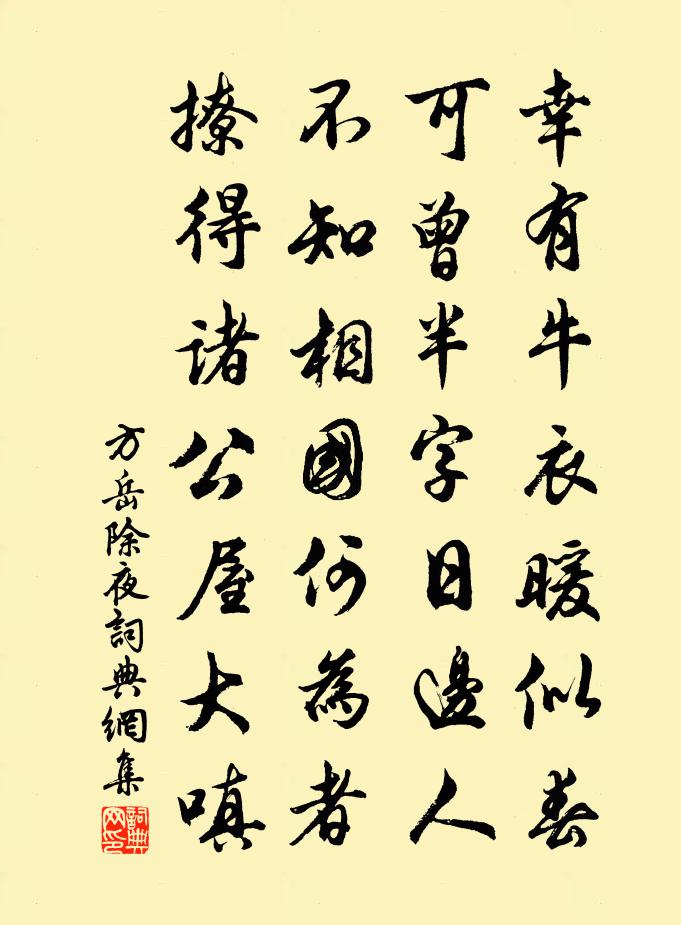 幸有牛衣暖似春
可曾半字日邊人
不知相國何為者
撩得諸公屋大嗔
方岳除夜詞典網集
詞典網印